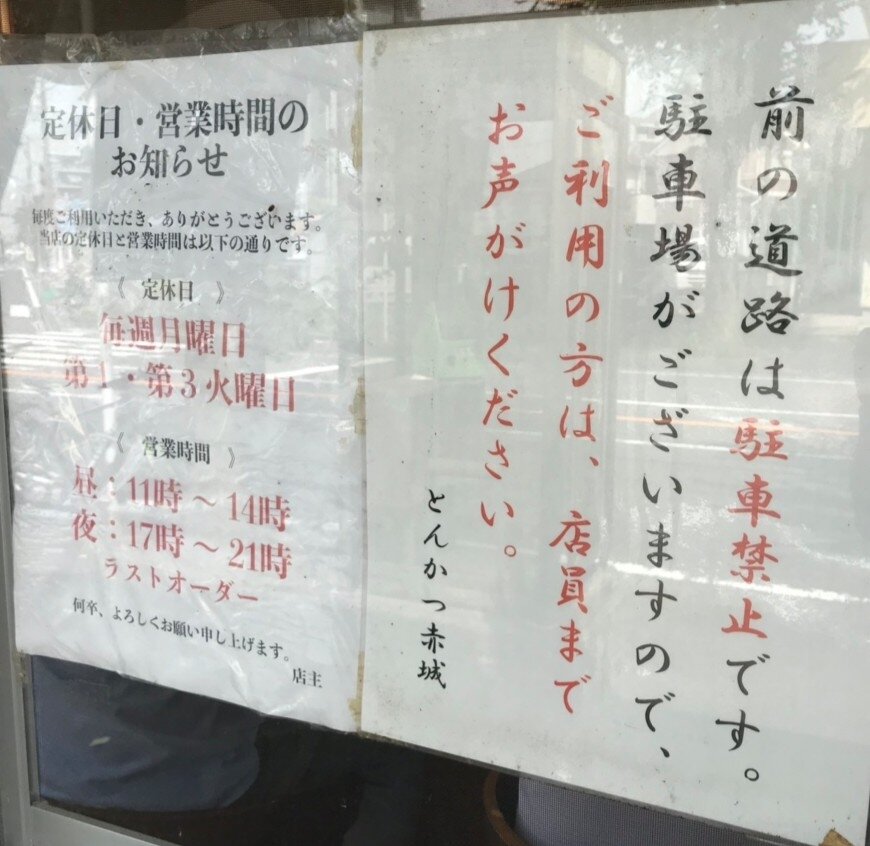 定休日・営業時間の
お知らせ
毎度ご利用いただき、ありがとうございます。
当店の定休日と営業時間は以下の通りです。
《 定休日 》
毎週月曜日
第1・第3火曜日
《 営業時間 》
昼：11時～14時
夜：17時～21時
ラストオーダー
何卒、よろしくお願い申し上げます。
店主
前の道路は駐車禁止です。
駐車場がございますので、
ご利用の方は、店員まで
お声がけください。
とんかつ赤城